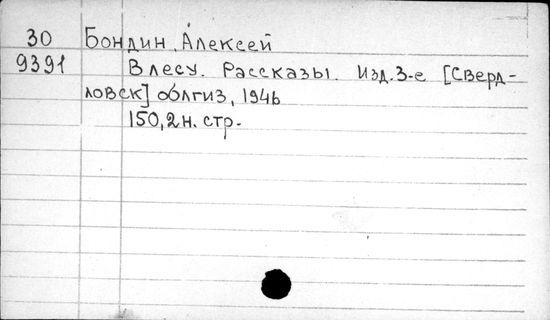 30 Бондин, Алексей
9391 В лесу. Рассказы. Изд. 3-е [Сверд-
ловск] облгиз, 1946
150, 2 н. стр.